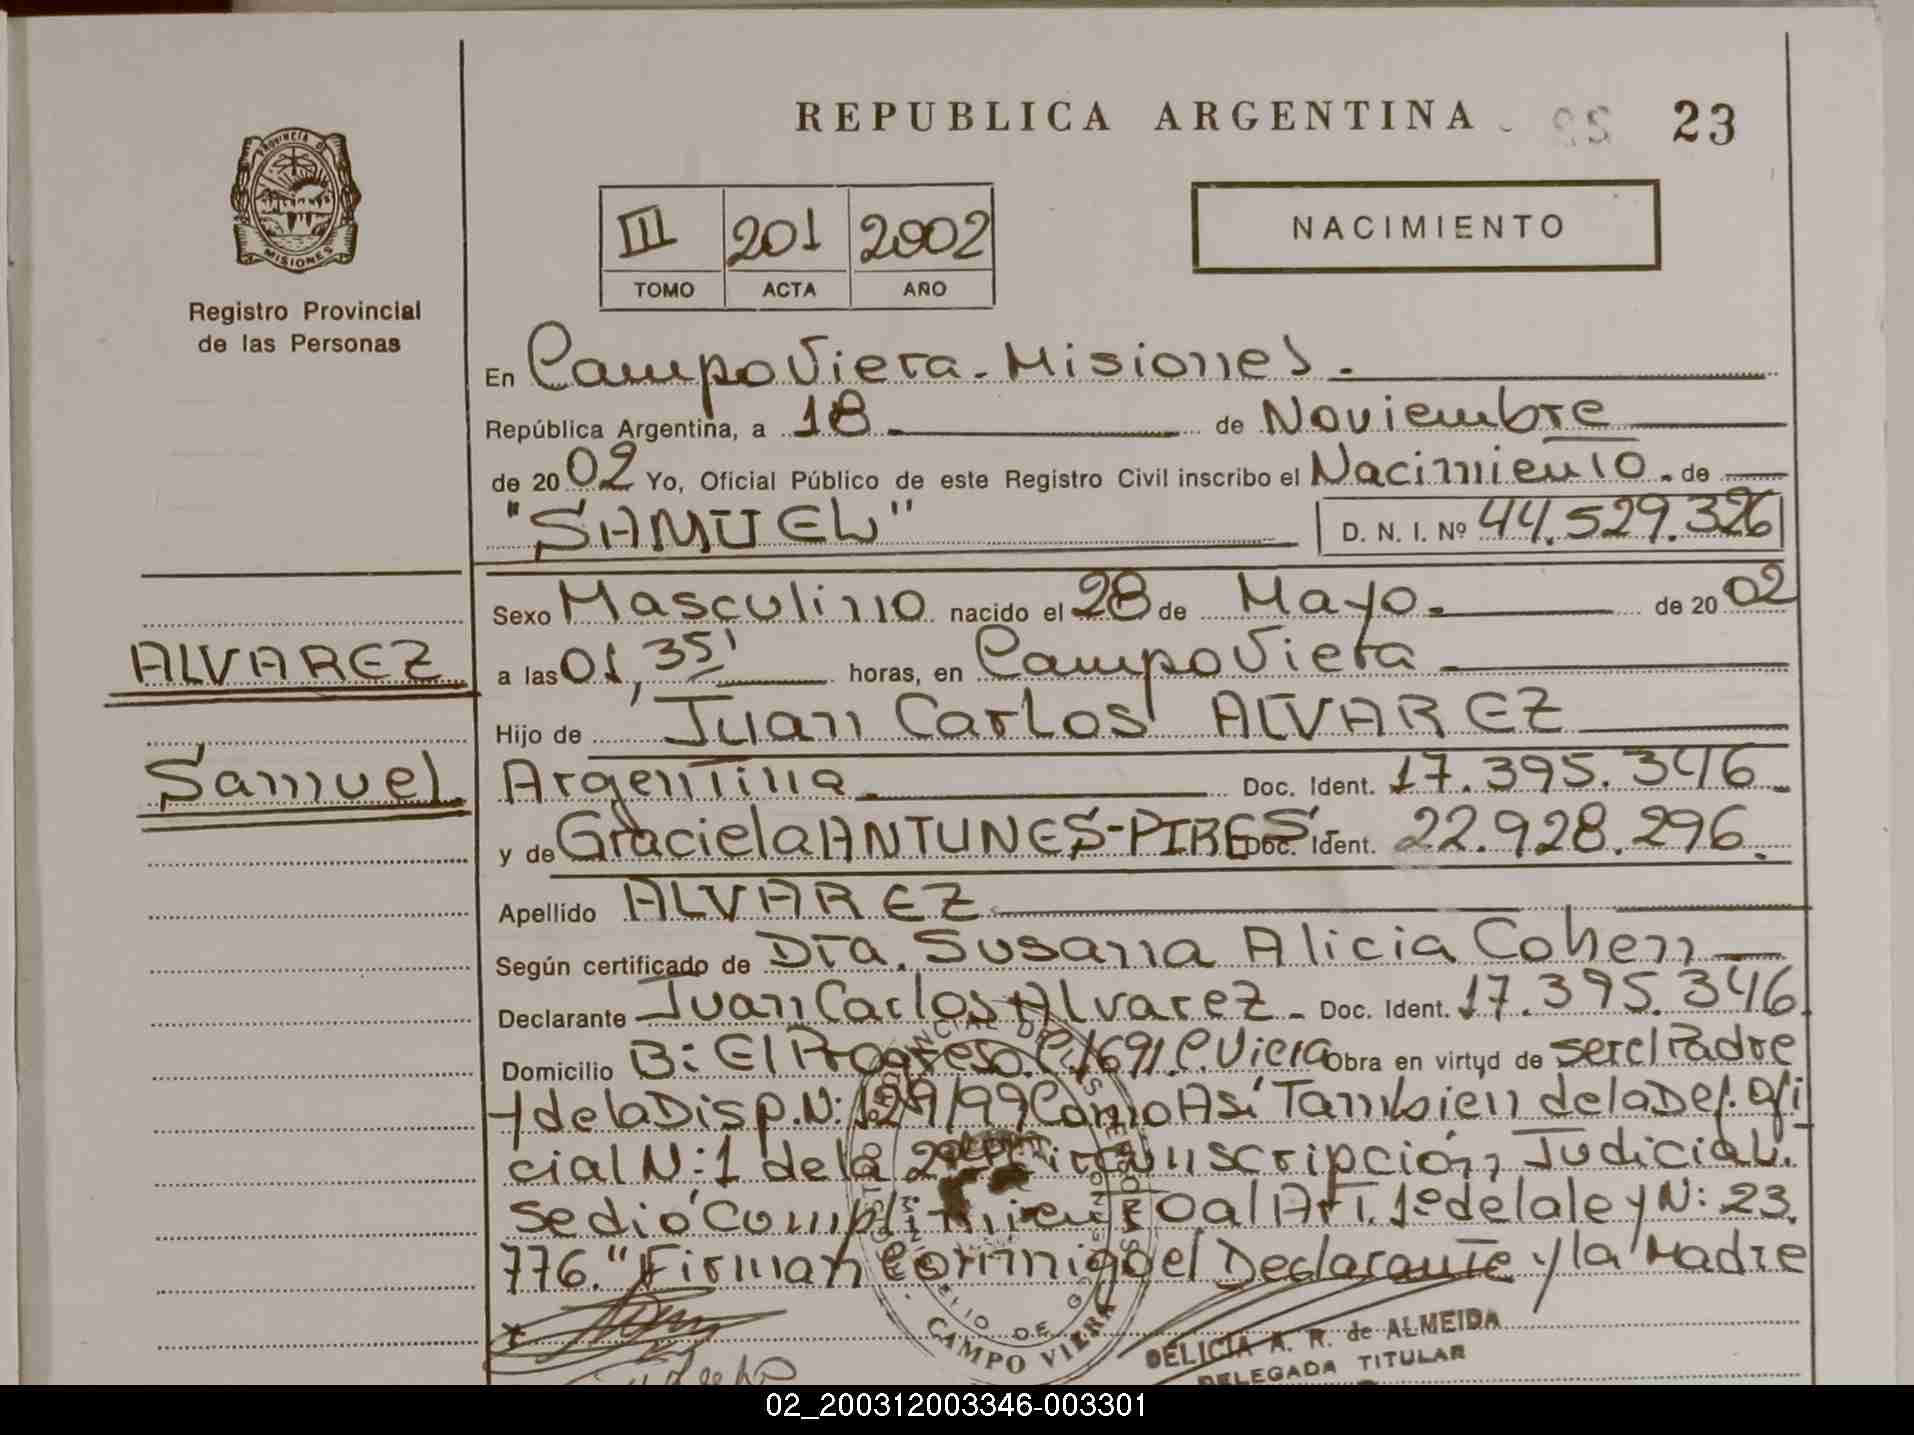 REPUBLICA ARGENTINA 23
PROVINCIA DE
MISIONES
Registro Provincial
de las Personas
III 201 2002
TOMO ACTA AÑO
NACIMIENTO
En Campo Viera - Misiones.
República Argentina, a 18 de Noviembre
de 2002 Yo, Oficial Público de este Registro Civil inscribo el Nacimiento. de
"SAMUEL" D. N. I. Nº 44.529.326
Sexo Masculino nacido el 28 de Mayo. de 2002
ALVAREZ
a las 01,35' horas, en Campo Viera
Hijo de Juan Carlos ALVAREZ
Samuel
Argentina Doc. Ident. 17.395.346
y de Graciela ANTUNES-PIRES Doc. Ident. 22.928.296.
Apellido ALVAREZ
Según certificado de Dra. Susana Alicia Cohen
Declarante Juan Carlos Alvarez - Doc. Ident. 17.395.346
Domicilio B: El Progreso. C. Viera Obra en virtud de ser el Padre
y de la Disp. N: /99 Como Así Tambien de la Def. Ofi
cial N: 1 de la 2 Circunscripción Judicial.
se dió Cumplimiento al Art. 1º de la ley N: 23.
776." Firman Conmigo el Declarante y la Madre
CAMPO VIERA
DELICIA A. R. de ALMEIDA
DELEGADA TITULAR
02_200312003346-003301